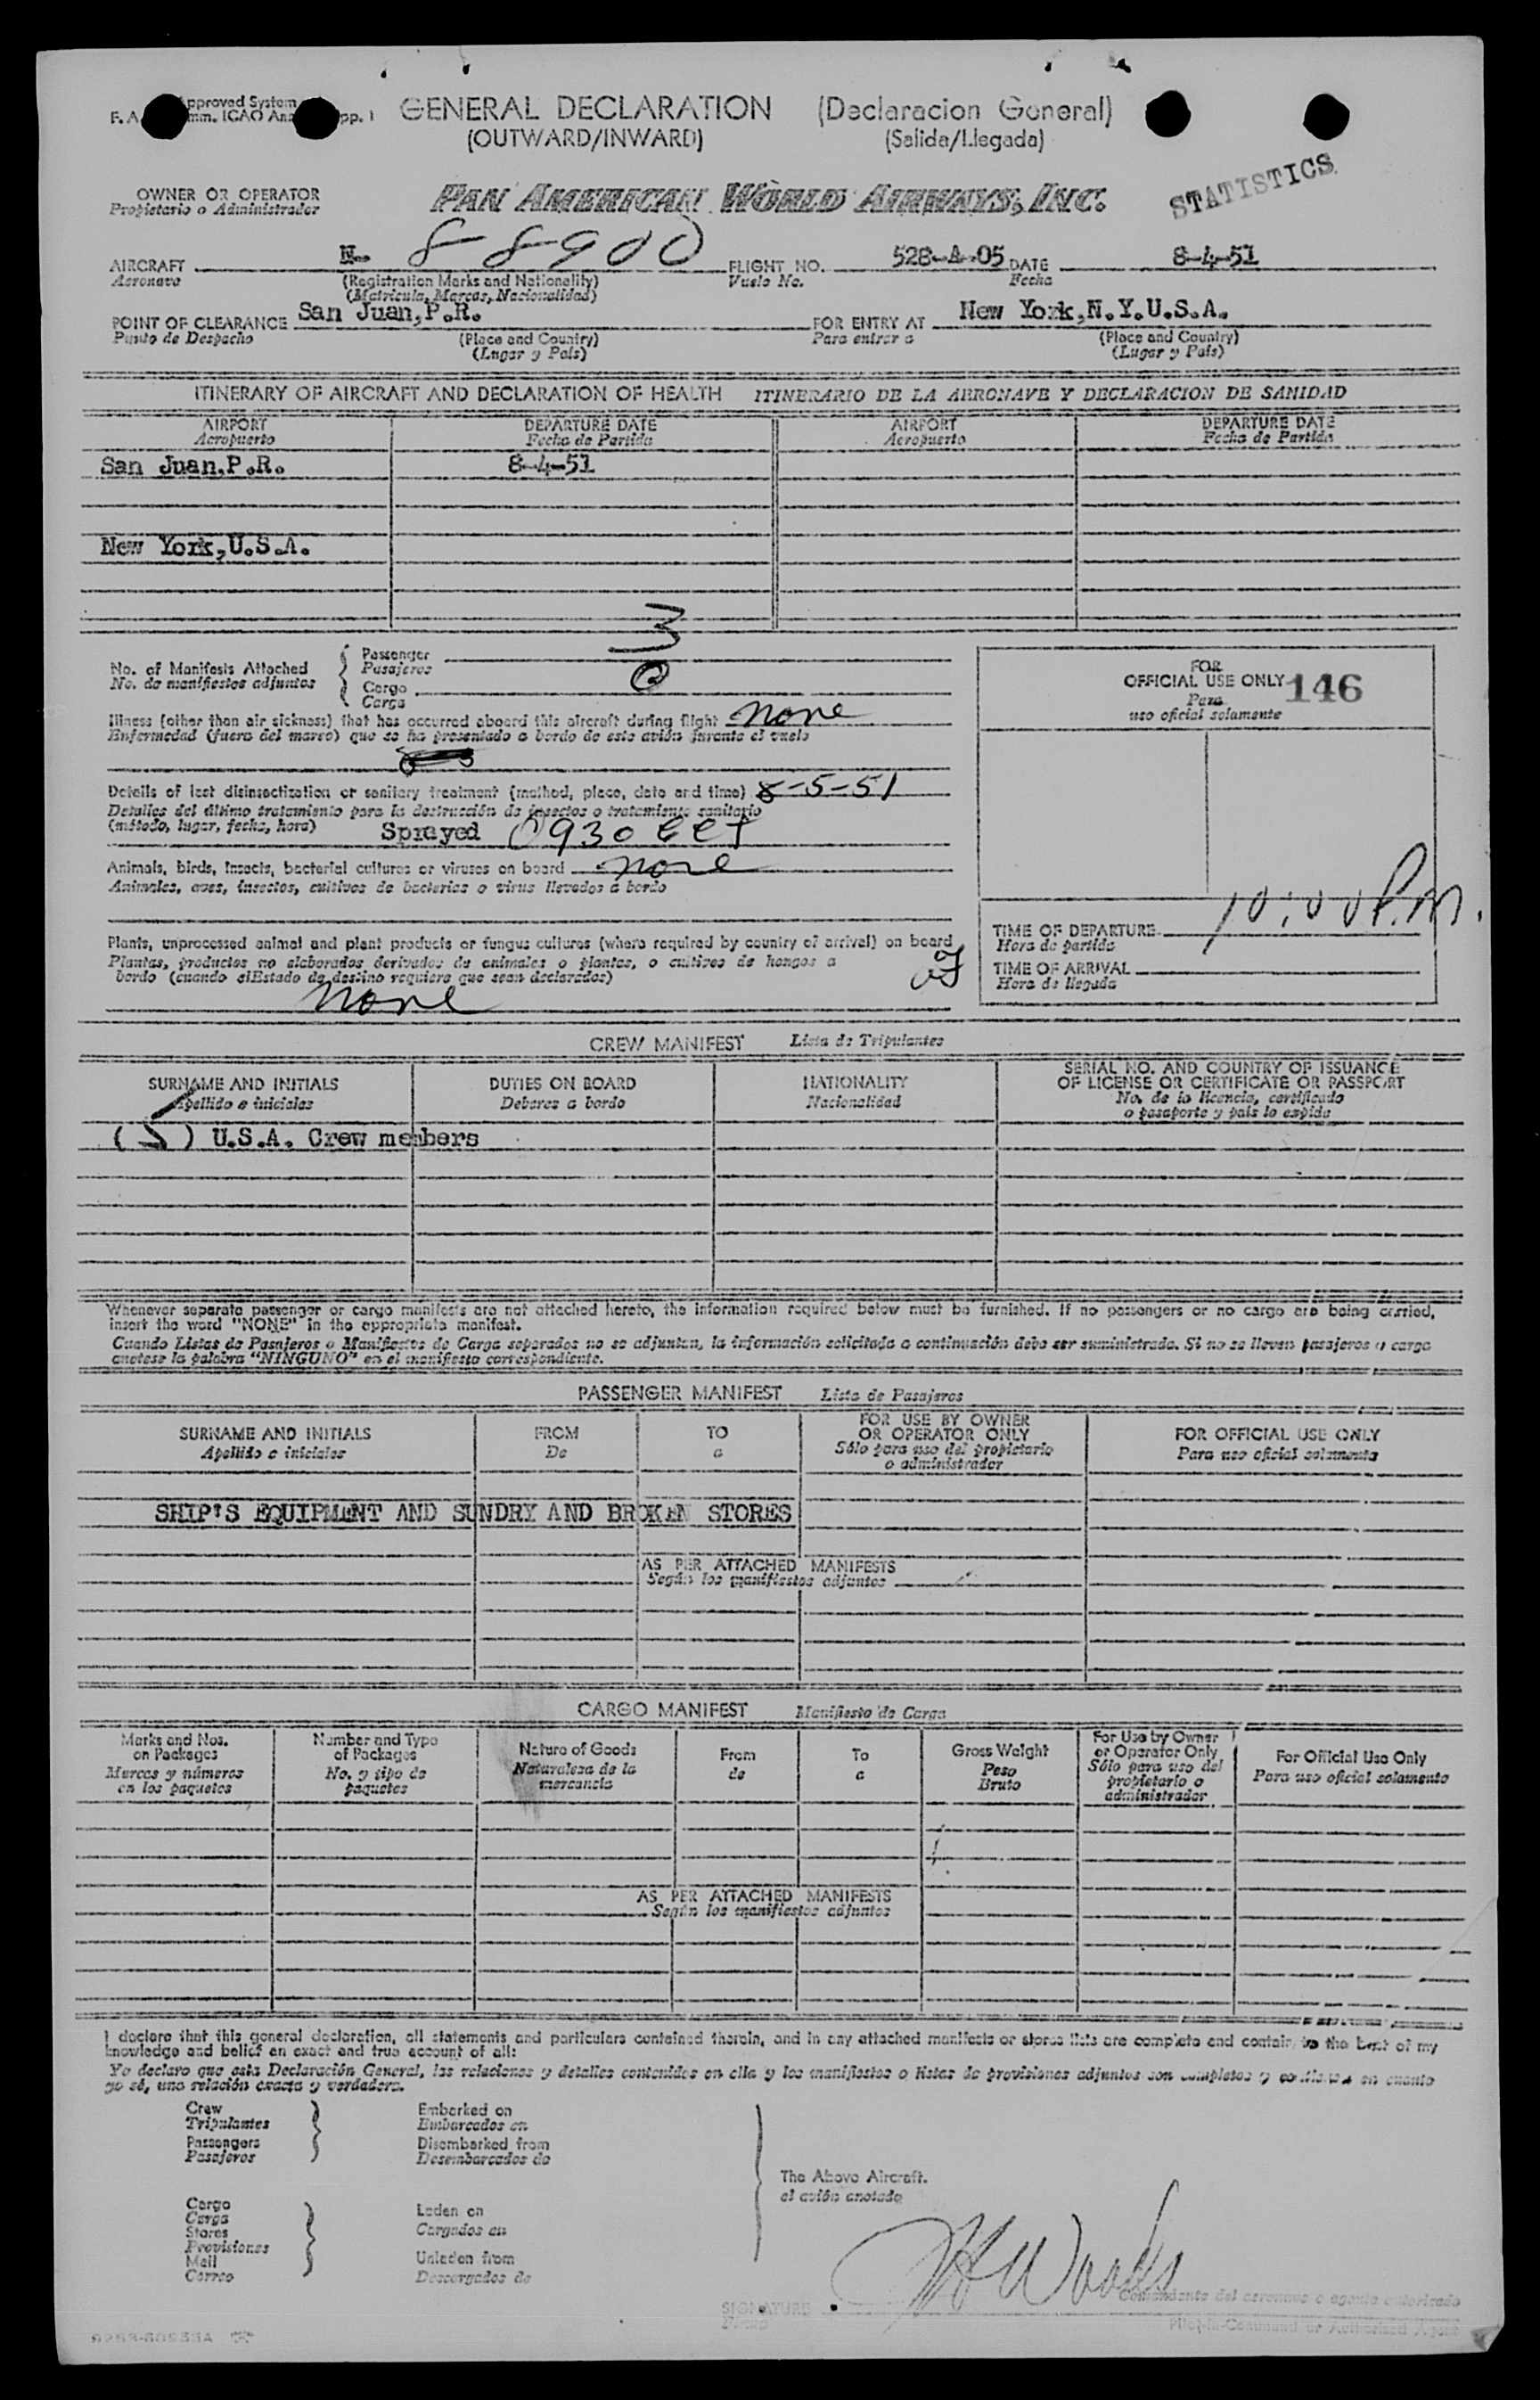 GENERAL DECLARATION (Declaracion General)
(OUTWARD/INWARD) (Salida/Llegada)
STATISTICS
OWNER OR OPERATOR PAN AMERICAN WORLD AIRWAYS, INC.
Propietario o Administrador
AIRCRAFT N- 88900 FLIGHT NO. 528-4-05 DATE 8-4-51
Aeronave (Registration Marks and Nationality) Vuelo No. Fecha
(Matricula, Marcas, Nacionalidad)
POINT OF CLEARANCE San Juan,P.R. FOR ENTRY AT New York,N.Y.U.S.A.
Punto de Despacho (Place and Country) Para entrar a (Place and Country)
(Lugar y País) (Lugar y País)
ITINERARY OF AIRCRAFT AND DECLARATION OF HEALTH ITINERARIO DE LA AERONAVE Y DECLARACION DE SANIDAD
AIRPORT DEPARTURE DATE AIRPORT DEPARTURE DATE
Aeropuerto Fecha de Partida Aeropuerto Fecha de Partida
San Juan,P.R. 8-4-51
New York,U.S.A.
No. of Manifests Attached Passenger 3
No. de manifiestos adjuntos Pasajeros
Cargo 0
Carga
Illness (other than air sickness) that has occurred aboard this aircraft during flight none
Enfermedad (fuera del mareo) que se ha presentado a bordo de este avión durante el vuelo
Details of last disinsectization or sanitary treatment (method, place, date and time) 8-5-51
Detalles del último tratamiento para la destrucción de insectos o tratamiento sanitario
(método, lugar, fecha, hora) Sprayed 0930
Animals, birds, insects, bacterial cultures or viruses on board none
Animales, aves, insectos, cultivos de bacterias o virus llevados a bordo
Plants, unprocessed animal and plant products or fungus cultures (where required by country of arrival) on board
Plantas, productos no elaborados derivados de animales o plantas, o cultivos de hongos a
bordo (cuando elEstado de destino requiere que sean declarados)
none
FOR
OFFICIAL USE ONLY 146
Para
uso oficial solamente
TIME OF DEPARTURE 10:00 P.M.
Hora de partida
TIME OF ARRIVAL
Hora de llegada
CREW MANIFEST Lista de Tripulantes
SURNAME AND INITIALS DUTIES ON BOARD NATIONALITY SERIAL NO. AND COUNTRY OF ISSUANCE
OF LICENSE OR CERTIFICATE OR PASSPORT
Apellido e iniciales Deberes a bordo Nacionalidad No. de la licencia, certificado
o pasaporte y país lo expide
(5) U.S.A. Crew members
Whenever separate passenger or cargo manifests are not attached hereto, the information required below must be furnished. If no passengers or no cargo are being carried,
insert the word "NONE" in the appropriate manifest.
Cuando Listas de Pasajeros o Manifiestos de Carga separados no se adjuntan, la información solicitada a continuación debe ser suministrada. Si no se llevan pasajeros o carga
anotese la palabra "NINGUNO" en el manifiesto correspondiente.
PASSENGER MANIFEST Lista de Pasajeros
SURNAME AND INITIALS FROM TO FOR USE BY OWNER
OR OPERATOR ONLY FOR OFFICIAL USE ONLY
Apellido e iniciales De a Sólo para uso del propietario
o administrador Para uso oficial solamente
SHIP'S EQUIPMENT AND SUNDRY AND BROKEN STORES
AS PER ATTACHED MANIFESTS
Según los manifiestos adjuntos
CARGO MANIFEST Manifiesto de Carga
Marks and Nos.
on Packages
Marcas y números
en los paquetes
Number and Type
of Packages
No. y tipo de
paquetes
Nature of Goods
Naturaleza de la
mercancía
From
de
To
a
Gross Weight
Peso
Bruto
For Use by Owner
or Operator Only
Sólo para uso del
propietario o
administrador
For Official Use Only
Para uso oficial solamente
AS PER ATTACHED MANIFESTS
Según los manifiestos adjuntos
I declare that this general declaration, all statements and particulars contained therein, and in any attached manifests or stores lists are complete and contain, to the best of my
knowledge and belief an exact and true account of all:
Yo declaro que esta Declaración General, las relaciones y detalles contenidos en ella y los manifiestos o listas de provisiones adjuntos son completos y contienen en cuanto
yo sé, una relación exacta y verdadera.
Crew Embarked on
Tripulantes Embarcados en
Passengers Disembarked from
Pasajeros Desembarcados de
The Above Aircraft.
el avión anotado
Cargo Laden on
Carga Cargados en
Stores
Provisiones
Mail Unladen from
Correo Descargados de
SIGNATURE Woods
Firma
Comandante del aeronave o agente autorizado
Pilot-in-Command or Authorized Agent